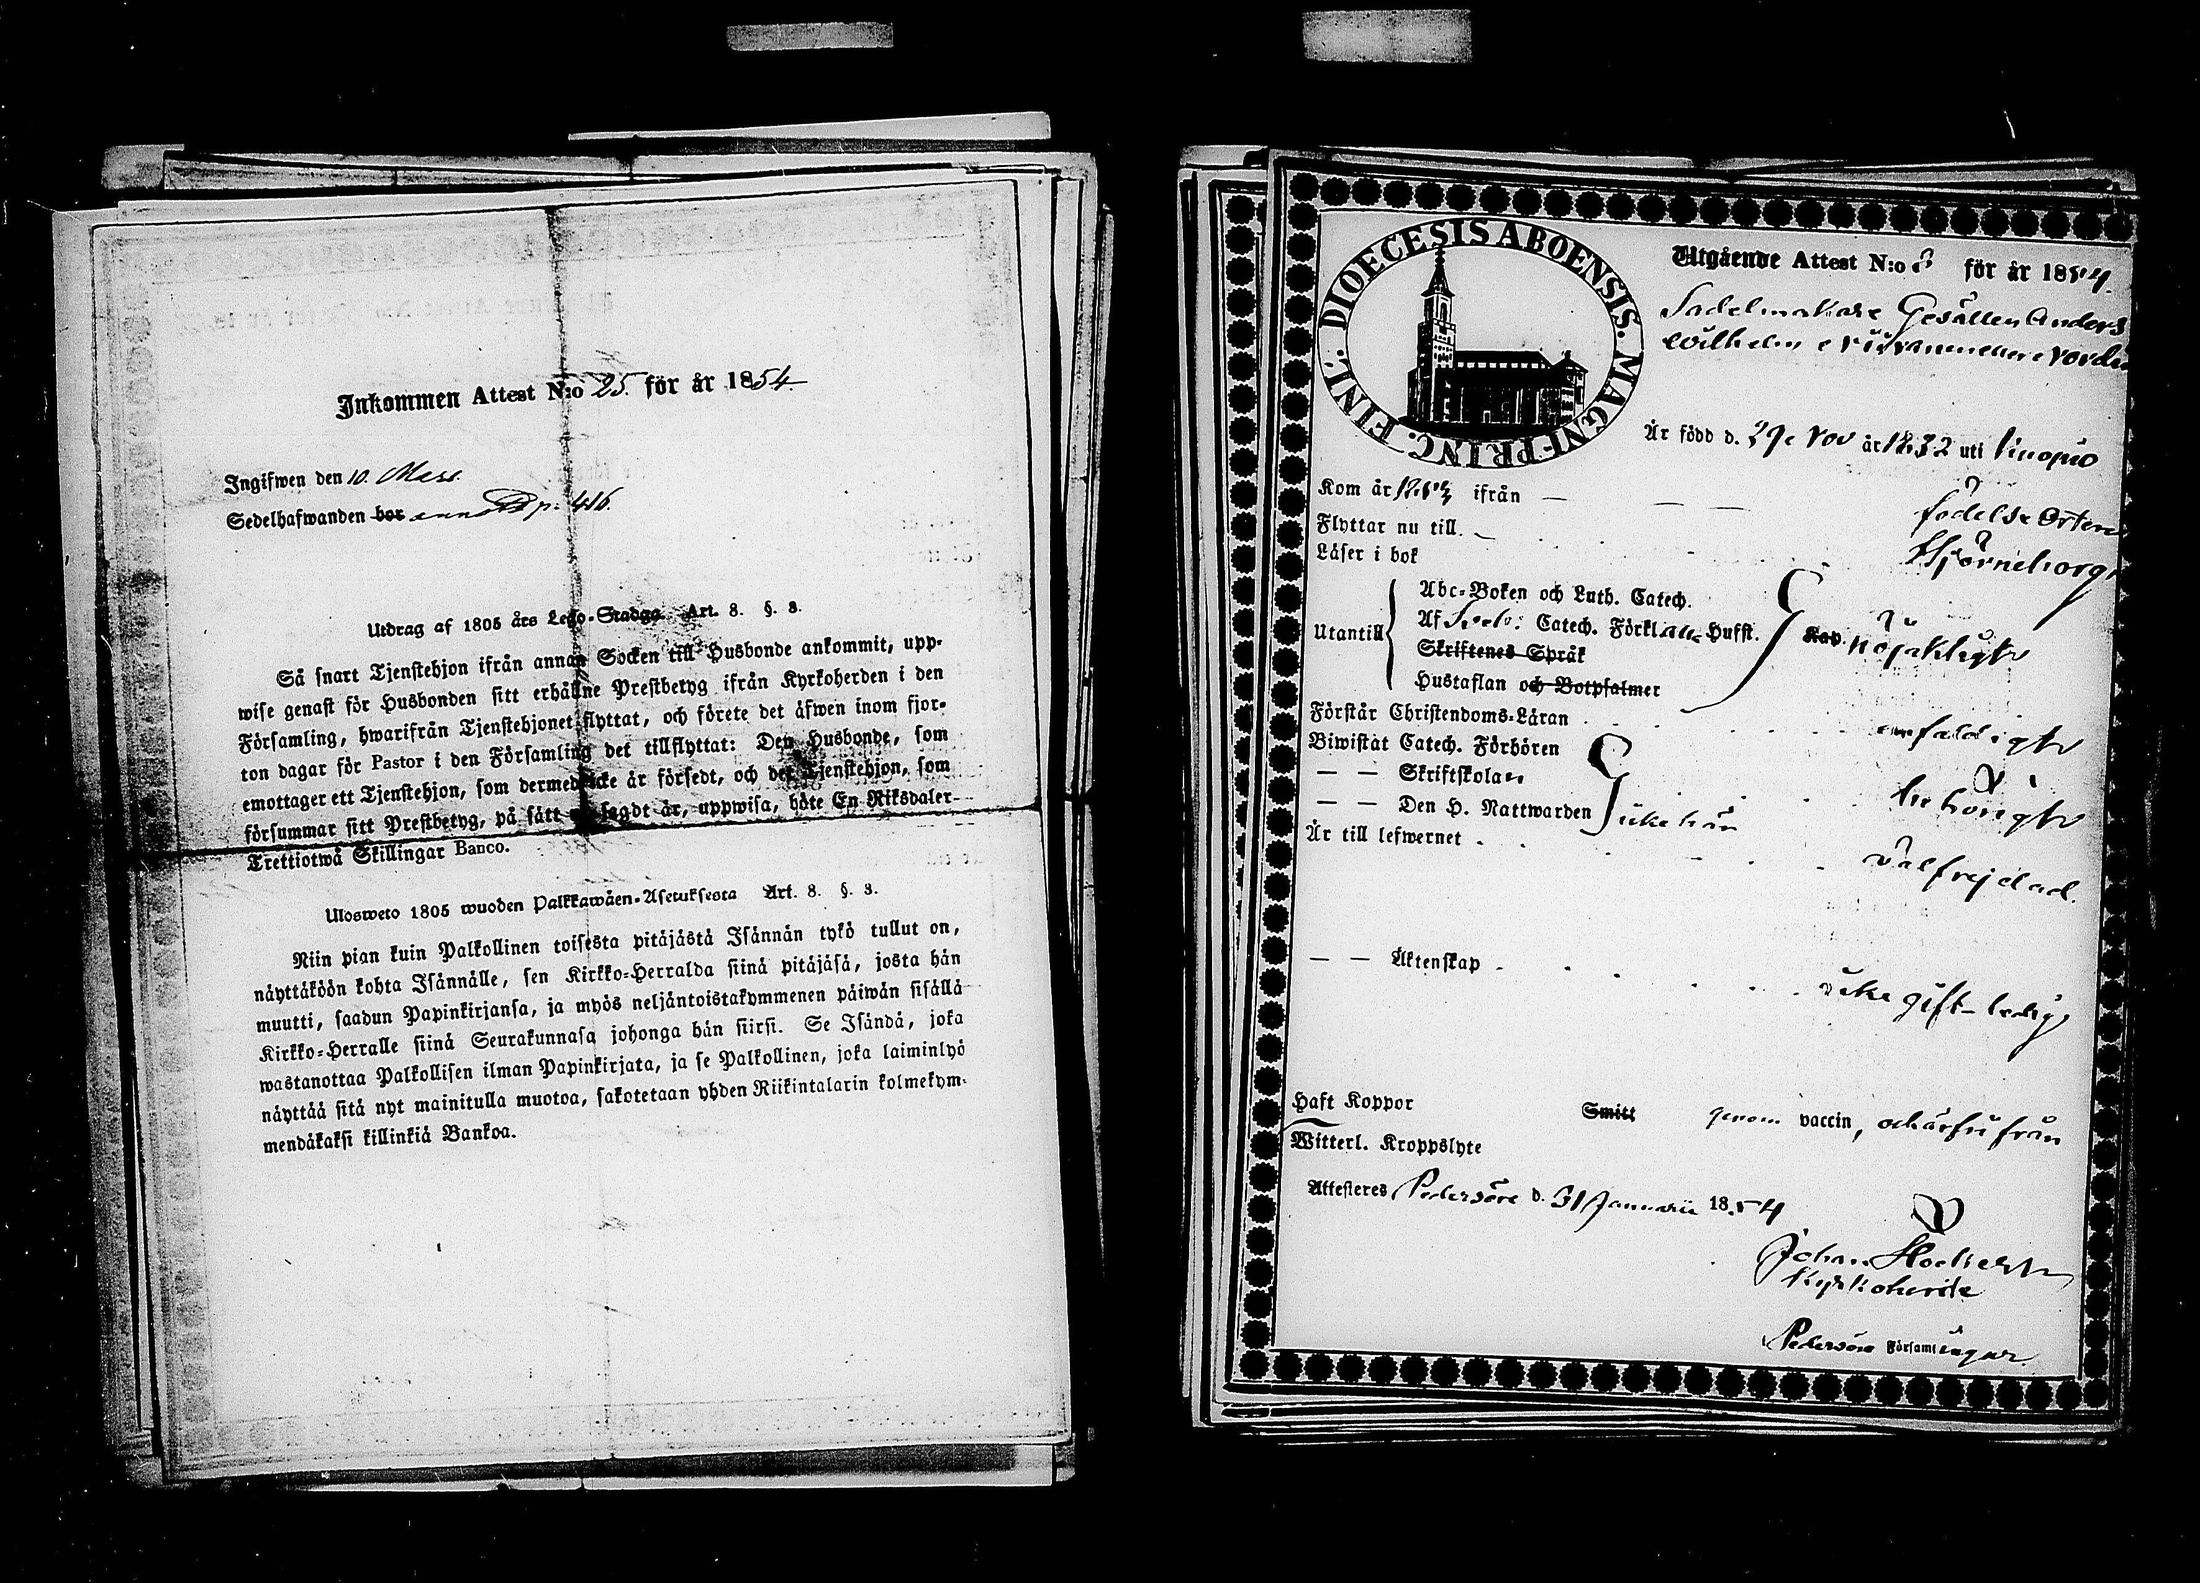 Inkommen Attest N:o 25. för år 1854
Ingifwen den 10. Mars.
Sedelhafwanden bor p. 416.
Utdrag af 1805 års Lego-Stadga Art. 8. §. 3.
Så snart Tjenstehjon ifrån annan Socken till Husbonde ankommit, upp-
wise genast för Husbonden sitt erhållne Prestbetyg ifrån Kyrkoherden i den
Församling, hwarifrån Tjenstehjonet flyttat, och förete det äfwen inom fjor-
ton dagar för Pastor i den Församling det tillflyttat: Den Husbonde, som
emottager ett Tjenstehjon, som dermed icke är försedt, och det Tjenstehjon, som
försummar sitt Prestbetyg, på sätt sagdt är, uppwisa, böte En Riksdaler
Trettiotwå Skillingar Banco.
Ulosweto 1805 wuoden Palkkawäen-Asetuksesta Art. 8. §. 3.
Niin pian kuin Palkollinen toisesta pitäjästä Isännän tykö tullut on,
näyttäköön kohta Isännälle, sen Kirkko-Herralda siinä pitäjäsä, josta hän
muutti, saadun Papinkirjansa, ja myös neljäntoistakymmenen päiwän sisällä
Kirkko-Herralle siinä Seurakunnasa johonga hän siirsi. Se Isändä, joka
wastanottaa Palkollisen ilman Papinkirjata, ja se Palkollinen, joka laiminlyö
näyttää sitä nyt mainitulla muotoa, sakotetaan yhden Riikintalarin kolmekym-
mendäkaksi killinkiä Bankoa.
DIOECESIS ABOENSIS. MAGNI-PRINC. FINL.
Utgående Attest N:o 3 för år 1854.
Sadelmakare Gesällen Anders
Wilhelm
Är född d. 29 Nov år 1832 uti Kuopio
Kom år 1853 ifrån — födelse Orten
Flyttar nu till Björneborg
Läser i bok
Utantill
Abc-Boken och Luth. Catech.
Af Sveb: Catech. Förkl Husst.
Skriftenes Språk
Hustaflan och Botpsalmer
Kap. nöjaktigt
Förstår Christendoms-Läran enfaldigt
Biwistat Catech. Förhören
— — Skriftskolan behörigt
— — Den H. Nattwarden
Är till lefwernet välfrejdad.
— — Äktenskap icke gift – ledig
Haft Koppor Smitt genom vaccin, och är fri från
Witterl. Kroppslyte
Attesteres Pedersöre d. 31 Januarii 1854
Johan Hockert
Kyrkoherde
Pedersöre Församlingar.